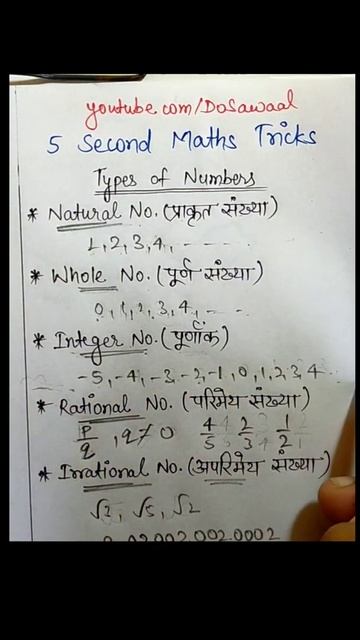 youtube.com/DoSawaal
5 Second Maths Tricks
Types of Numbers
* Natural No. (प्राकृत संख्या)
1, 2, 3, 4, - - - -
* Whole No. (पूर्ण संख्या)
0, 1, 2, 3, 4, - - -
* Integer No. (पूर्णांक)
-5, -4, -3, -2, -1, 0, 1, 2, 3, 4
* Rational No. (परिमेय संख्या)
p/q, q≠0 4/5 2/3 1/2
* Irrational No. (अपरिमेय संख्या)
√2, √5, √2